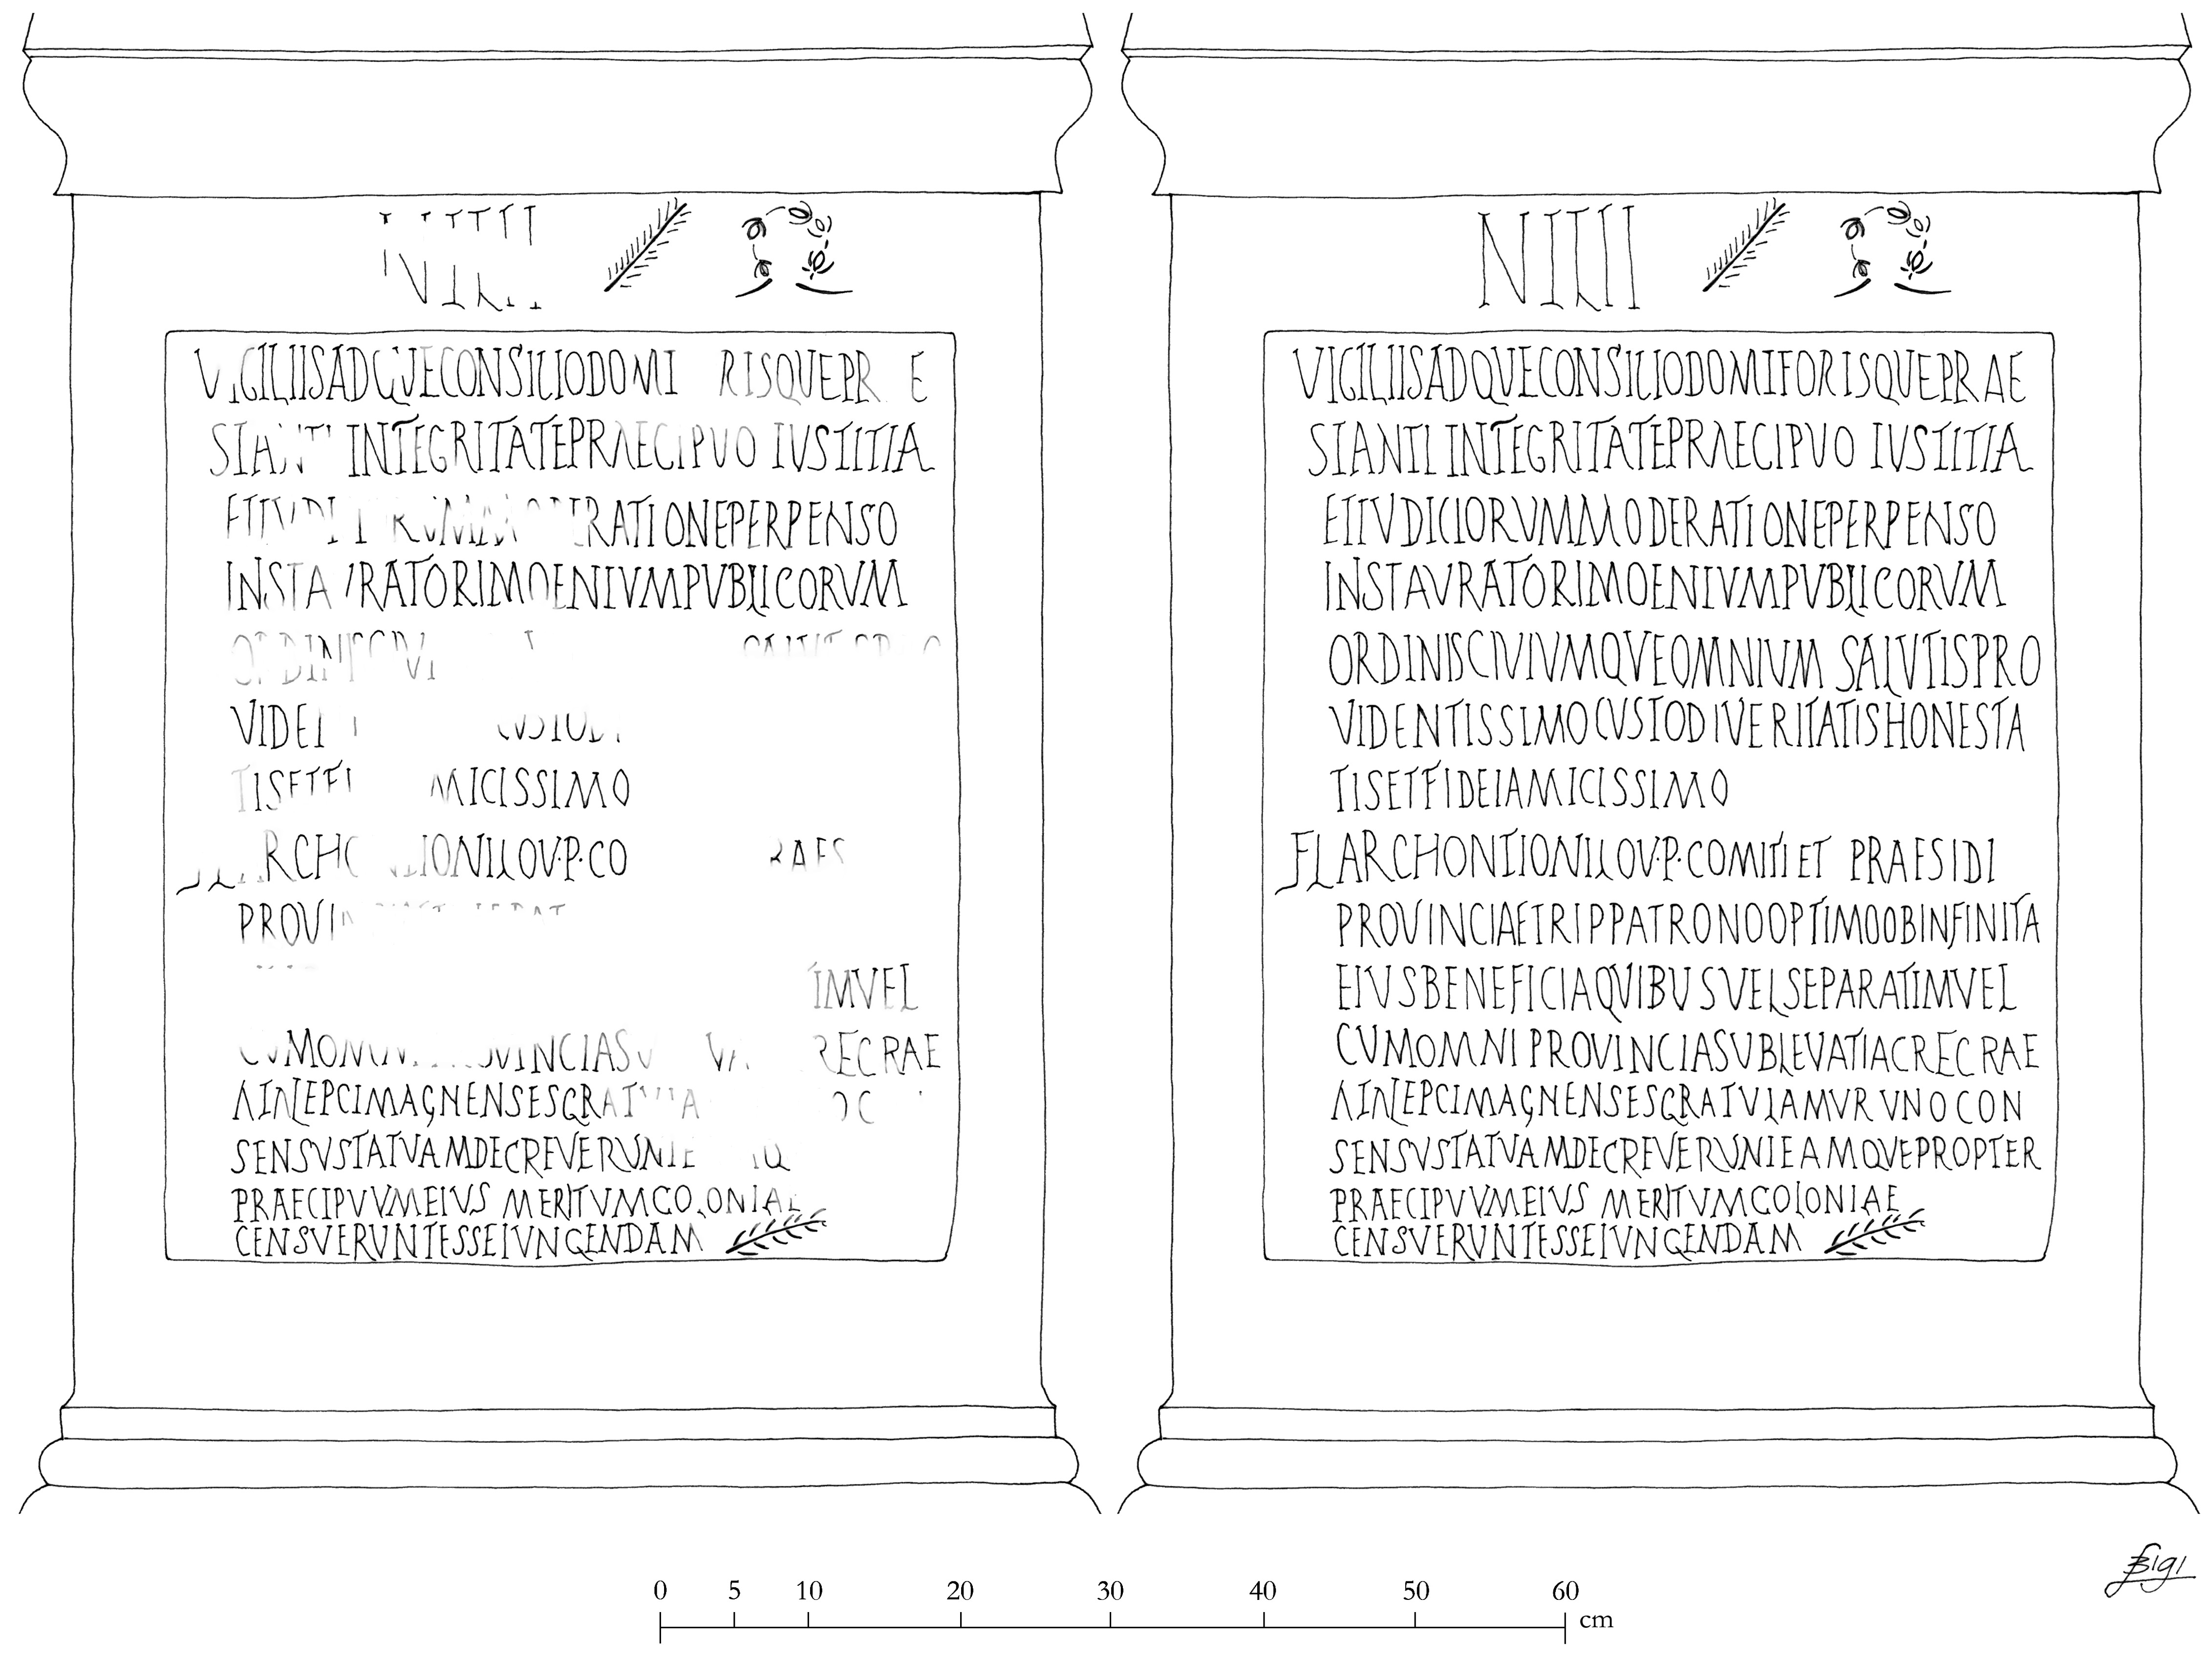 VIGILIISADQUECONSILIODOMI RISQUEPR E
SIANTI INTEGRITATEPRAECIPVO IVSTITIA
RATIONEPERPENSO
INSTA VRATORIMOENIVMPVBLICORVM
ORDINISCIVI
VIDE
TISETFI MICISSIMO
RCHO TIONILOV·P·CO RAES
PROVIN
TIMVEL
CVMOMNI PROVINCIAS VA RECRE RAE
ATALEPCIMAGNENSESGRAT
SENSVSTATVAMDECREVERUNTE
PRAECIPVVMEIVS MERITVMCOLONIAE
CENSVERVNTESSEIVNGENDAM
NILII
VIGILIISADQUECONSILIODOMIFORISQUEPRAE
SIANTI INTEGRITATEPRAECIPVO IVSTITIA
ETIVDICIORVMMODERATIONEPERPENSO
INSTAVRATORIMOENIVMPVBLICORVM
ORDINISCIVIVMQVEOMNIVM SALVTISPRO
VIDENTISSIMOCVSTODIVERITATISHONESTA
TISETFIDEIAMICISSIMO
FLARCHONTIONILOV·P·COMITI ET PRAESIDI
PROVINCIAETRIPPATRONOOPTIMOOBINFINITA
EIVSBENEFICIAQVIBVSVELSEPARATIMVEL
CVMOMNI PROVINCIASVBLEVATIACRECRAE
ATALEPCIMAGNENSESGRATVLAMVR VNOCON
SENSVSTATVAMDECREVERVNTEAMQVEPROPTER
PRAECIPVVMEIVS MERITVMCOLONIAE
CENSVERVNTESSEIVNGENDAM
0 5 10 20 30 40 50 60
cm
Bigi